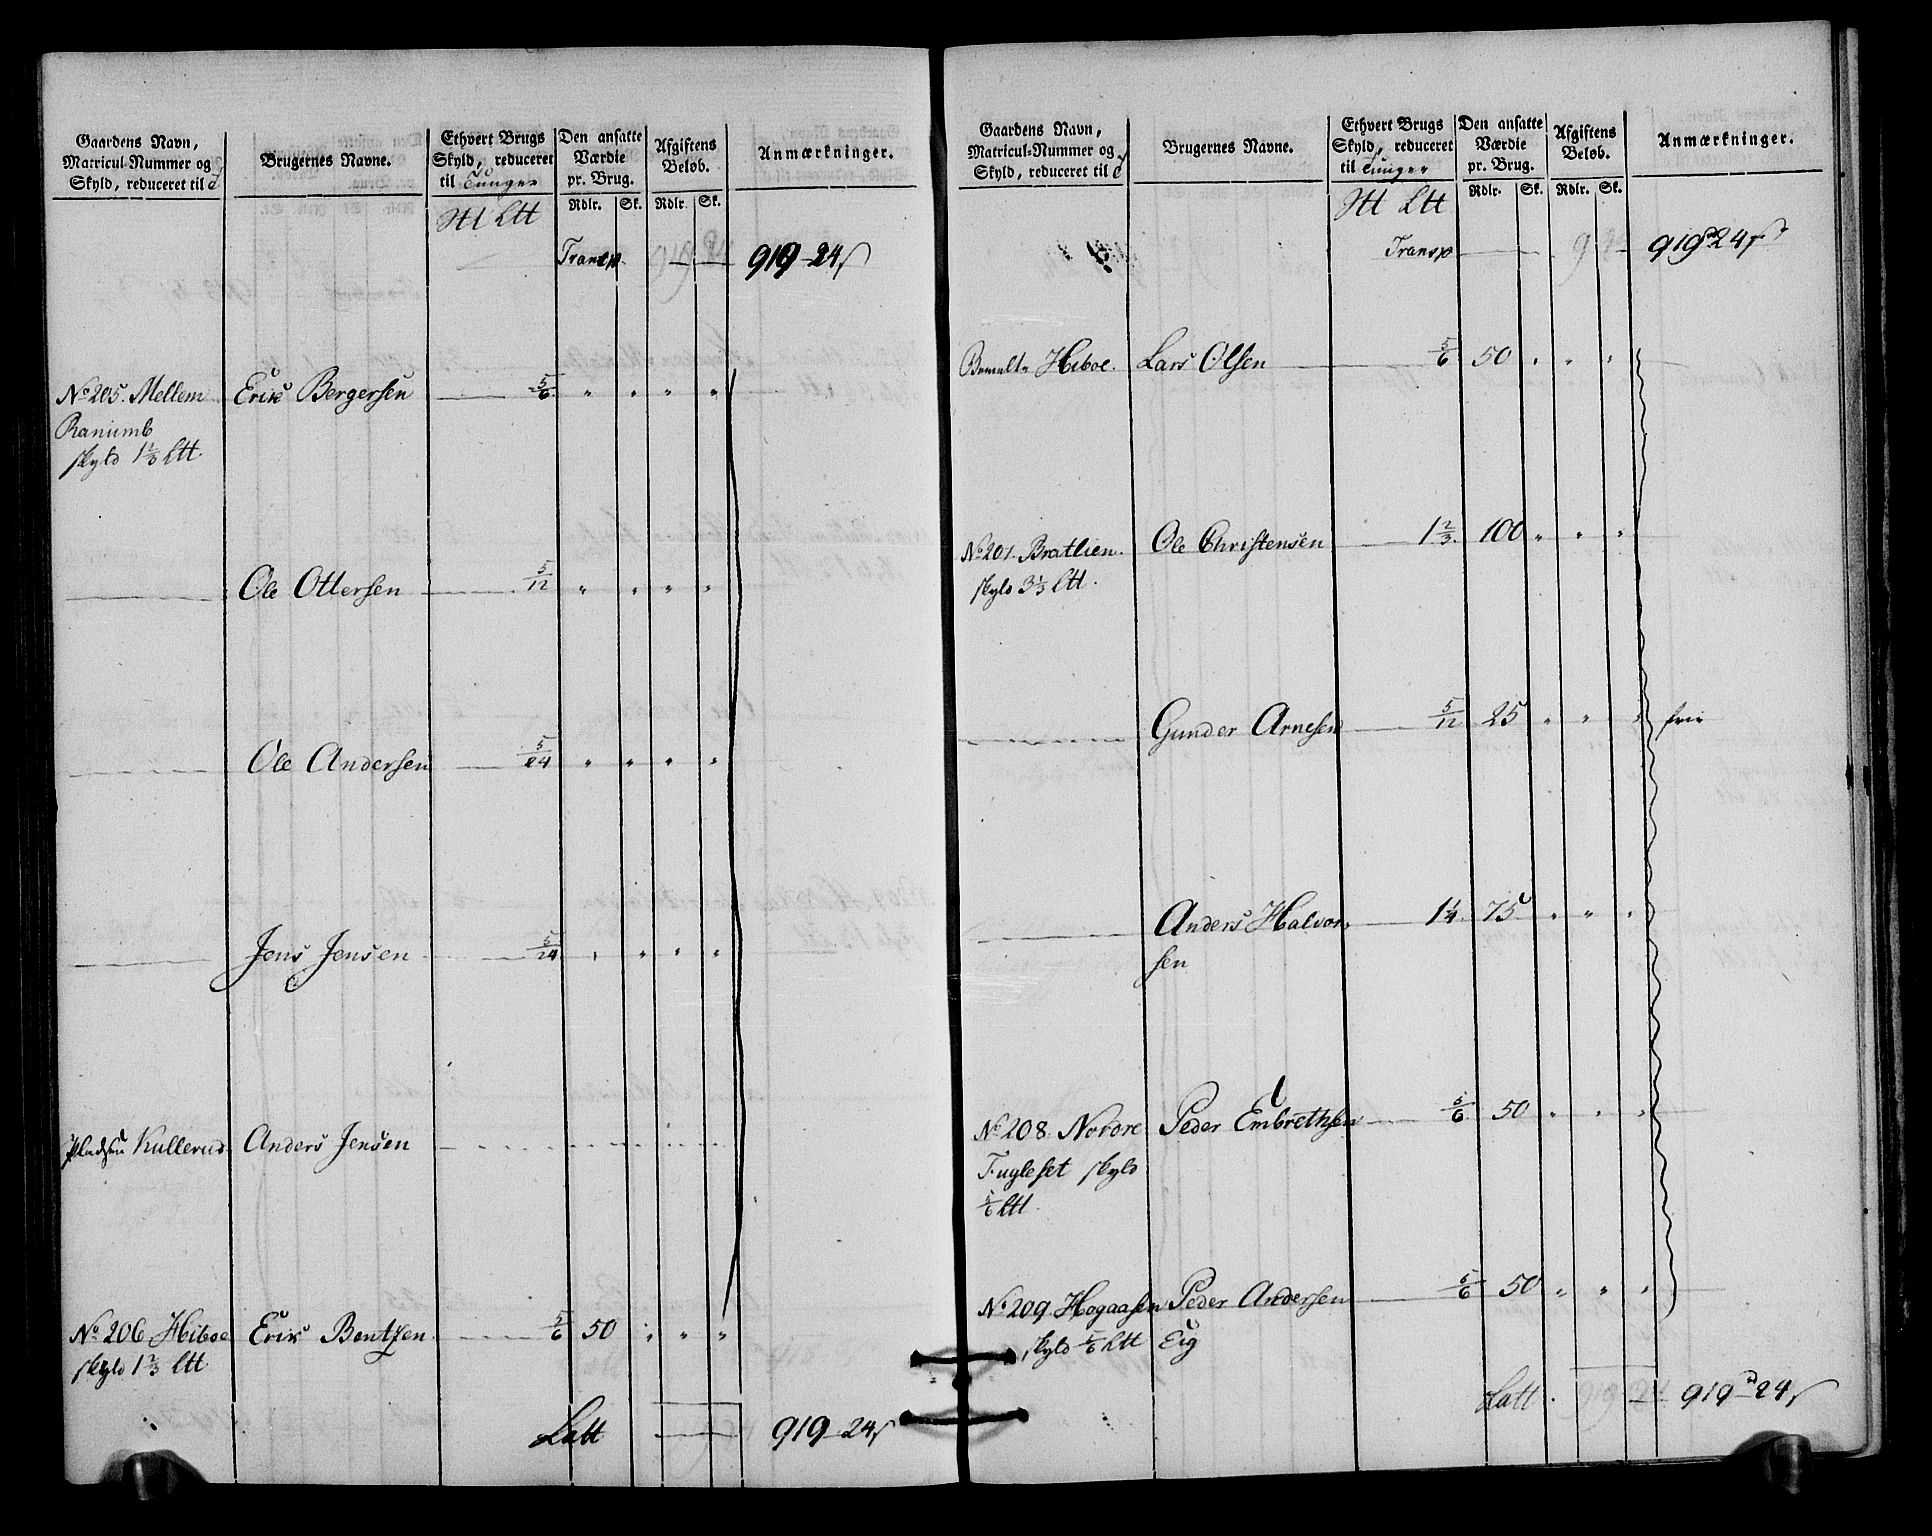 Gaardens Navn, Matricul-Nummer og Skyld, reduceret til
Brugernes Navne.
Ethvert Brugs Skyld, reduceret til Tunger
Den ansatte Værdie pr. Brug.
Afgiftens Beløb.
Anmærkninger.
Rdlr. Sk. Rdlr. Sk.
Ltt
Transp. 919 24 919 - 24
No 205. Mellem Erik Bergersen 5/6 " " " "
Ranumb
skyld 1 2/3 Ltt.
Ole Ottersen 5/12 " " " "
Ole Andersen 5/24 " " " "
Jens Jensen 5/24 " " " "
Pladsen Kullerud Anders Jensen
No 206 Hiboe Erik Bentzen 5/6 50 " " "
skyld 1 2/3 Ltt
Latt 919 - 24
Gaardens Navn, Matricul-Nummer og Skyld, reduceret til
Brugernes Navne.
Ethvert Brugs Skyld, reduceret til Tunger
Den ansatte Værdie pr. Brug.
Afgiftens Beløb.
Anmærkninger.
Rdlr. Sk. Rdlr. Sk.
Ltt
Transp 919 24
Hiboe. Lars Olsen 5/6 50 " " "
No 207. Bratlien. Ole Christensen 1 2/3 100 " " "
skyld 3 1/3 Ltt.
Gunder Arnesen 5/12 25 " " " frie
Anders Halvor-
sen 1 1/4 75 " " "
No 208. Nordre Peder Embrethsen 5/6 50 " " "
Fugleset skyld
5/6 Ltt.
No 209 Hogaasen Peder Andersen 5/6 50 " " "
skyld 5/6 Ltt Eig
Latt. 919 24 919 - 24